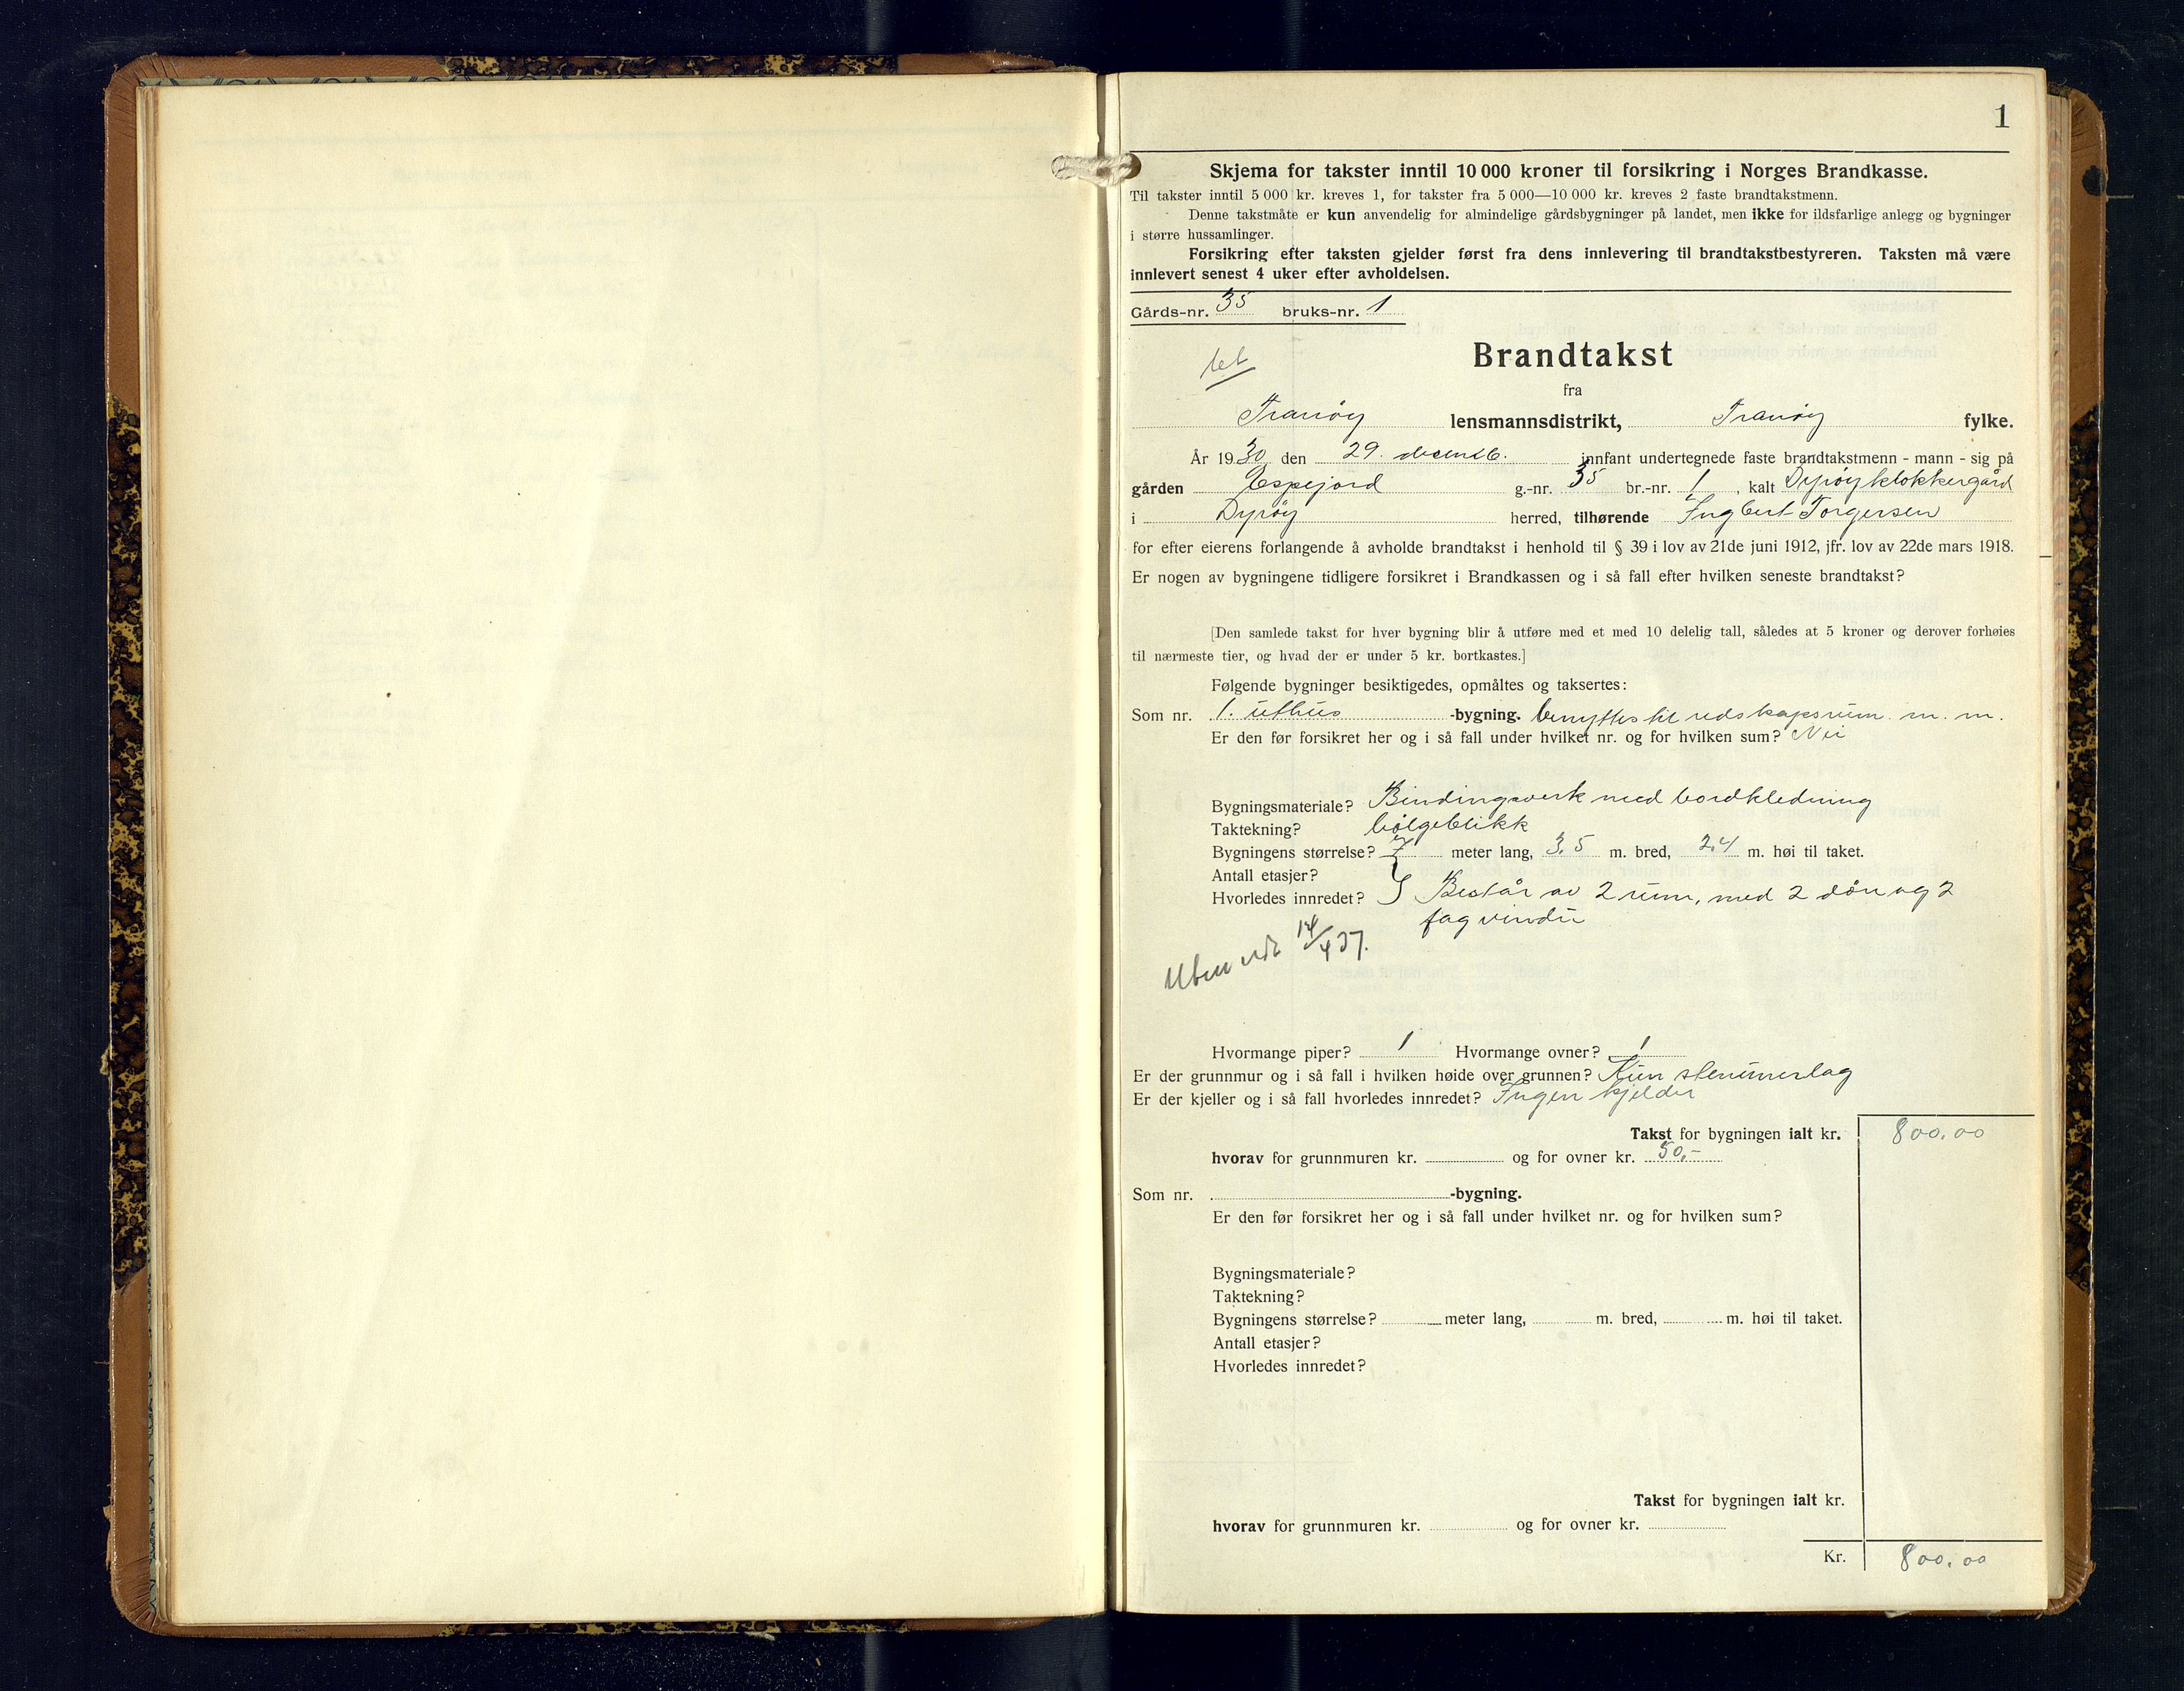 1
Skjema for takster inntil 10 000 kroner til forsikring i Norges Brandkasse.
Til takster inntil 5 000 kr. kreves 1, for takster fra 5 000—10 000 kr. kreves 2 faste brandtakstmenn.
Denne takstmåte er kun anvendelig for almindelige gårdsbygninger på landet, men ikke for ildsfarlige anlegg og bygninger
i større hussamlinger.
Forsikring efter taksten gjelder først fra dens innlevering til brandtakstbestyreren. Taksten må være
innlevert senest 4 uker efter avholdelsen.
Gårds-nr. 35 bruks-nr. 1
Brandtakst
fra
Tranöy lensmannsdistrikt, Tranöy fylke.
År 1930 den 29. decemb. innfant undertegnede faste brandtakstmenn - mann - sig på
gården Espejord g.-nr. 35 br.-nr. 1, kalt Dyröy klokkergård
i Dyröy herred, tilhørende Ingbert Torgersen
for efter eierens forlangende å avholde brandtakst i henhold til § 39 i lov av 21de juni 1912, jfr. lov av 22de mars 1918.
Er nogen av bygningene tidligere forsikret i Brandkassen og i så fall efter hvilken seneste brandtakst?
[Den samlede takst for hver bygning blir å utføre med et med 10 delelig tall, således at 5 kroner og derover forhøies
til nærmeste tier, og hvad der er under 5 kr. bortkastes.]
Følgende bygninger besiktigedes, opmåltes og taksertes:
Som nr. 1. uthus -bygning. benyttes til redskapsrum m. m.
Er den før forsikret her og i så fall under hvilket nr. og for hvilken sum? Nei
Bygningsmateriale? Bindingsverk med bordkledning
Taktekning? bölgeblikk
Bygningens størrelse? 7 meter lang, 3,5 m. bred, 2,4 m. høi til taket.
Antall etasjer?
Hvorledes innredet? Består av 2 rum, med 2 dör og 2
fag vindu
14/4 37.
Hvormange piper? 1 Hvormange ovner? 1
Er der grunnmur og i så fall i hvilken høide over grunnen? Kun
Er der kjeller og i så fall hvorledes innredet? Ingen kjelder
Takst for bygningen ialt kr. 800.00
hvorav for grunnmuren kr. og for ovner kr. 50,-
Som nr. -bygning.
Er den før forsikret her og i så fall under hvilket nr. og for hvilken sum?
Bygningsmateriale?
Taktekning?
Bygningens størrelse? meter lang, m. bred, m. høi til taket.
Antall etasjer?
Hvorledes innredet?
Takst for bygningen ialt kr.
hvorav for grunnmuren kr. og for ovner kr.
Kr. 800.00